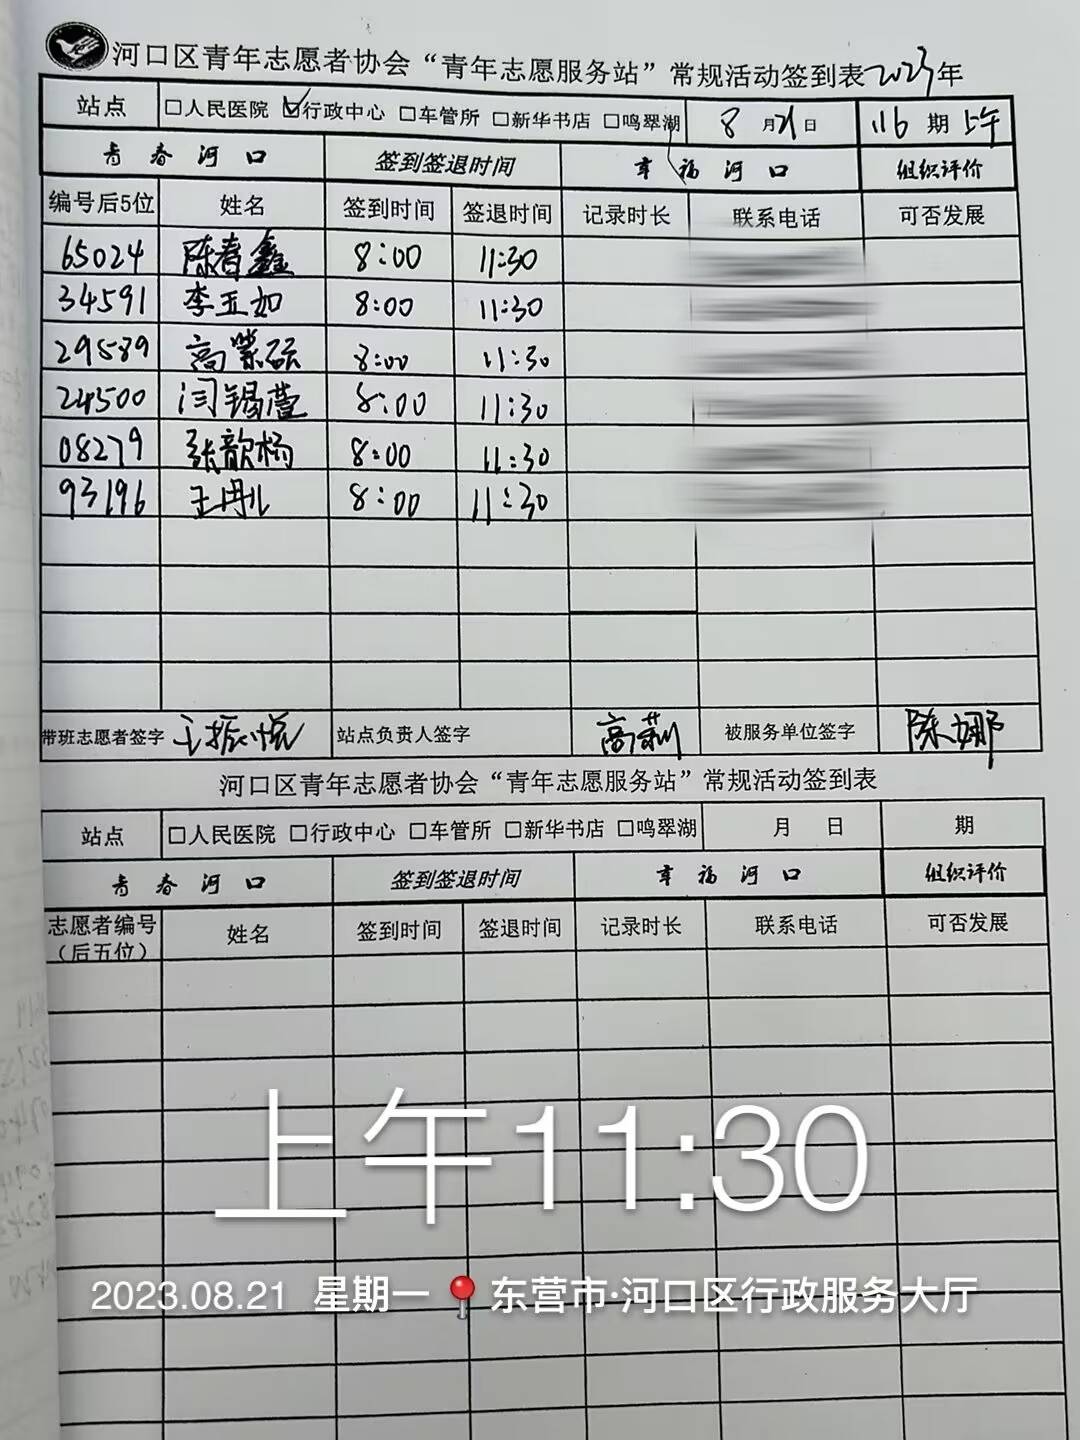 河口区青年志愿者协会“青年志愿服务站”常规活动签到表2023年
站点 □人民医院 ☑行政中心 □车管所 □新华书店 □鸣翠湖 8月21日 116期上午
青春河口 签到签退时间 幸福河口 组织评价
编号后5位 姓名 签到时间 签退时间 记录时长 联系电话 可否发展
65024 陈春鑫 8:00 11:30
34591 李玉如 8:00 11:30
29589 高 8:00 11:30
24500 闫锡萱 8:00 11:30
08279 张歆杨 8:00 11:30
93196 王丹儿 8:00 11:30
带班志愿者签字 王振悦 站点负责人签字 高莉 被服务单位签字 陈娜
河口区青年志愿者协会“青年志愿服务站”常规活动签到表
站点 □人民医院 □行政中心 □车管所 □新华书店 □鸣翠湖 月 日 期
青春河口 签到签退时间 幸福河口 组织评价
志愿者编号 姓名 签到时间 签退时间 记录时长 联系电话 可否发展
（后五位）
上午11:30
2023.08.21 星期一 东营市·河口区行政服务大厅